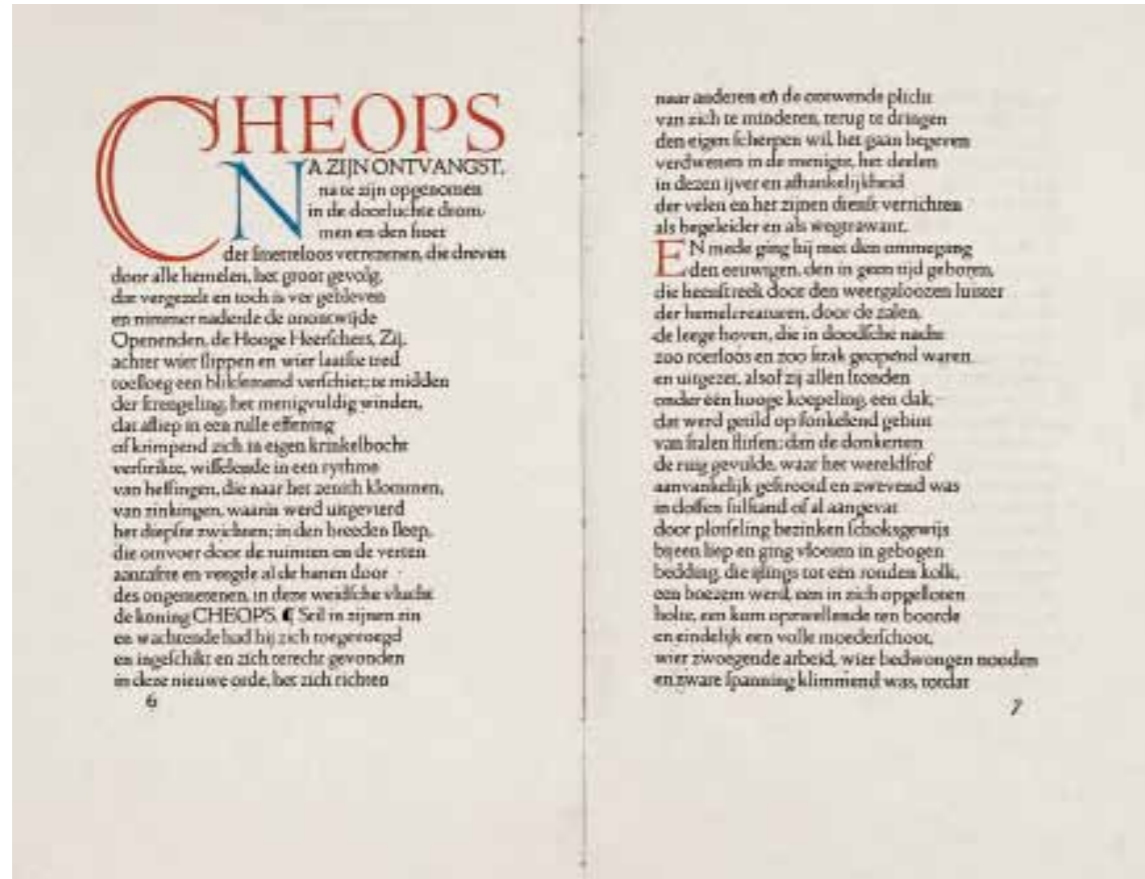 CHEOPS
NA ZIJN ONTVANGST,
na te zijn opgenomen
in de doorluchte drom-
men en den stoet
der smetteloos verrezenen, die dreven
door alle hemelen, het groot gevolg,
dat vergezelt en toch is ver gebleven
en nimmer naderde de onontwijde
Openenden, de Hooge Heerschers, Zij,
achter wier slippen en wier laatste tred
toesloeg een bliksemend verschiet; te midden
der strengeling, het menigvuldig winden,
dat afliep in een rulle effening
of krimpend zich in eigen krinkelbocht
verstrikte, wisselende in een rythme
van heffingen, die naar het zenith klommen,
van zinkingen, waarin werd uitgevierd
het diepste zwichten; in den breeden sleep,
die omvoer door de ruimten en de verten
aantastte en veegde al de banen door
des ongemetenen, in deze weidsche vlucht
de koning CHEOPS. ¶ Stil in zijnen zin
en wachtende had hij zich toegevoegd
en ingeschikt en zich terecht gevonden
in deze nieuwe orde, het zich richten
6
naar anderen en de ontwende plicht
van zich te minderen, terug te dringen
den eigen scherpen wil, het gaan begeven
verdwenen in de menigte, het deelen
in dezen ijver en afhankelijkheid
der velen en het zijnen dienst verrichten
als begeleider en als wegtrawant.
EN mede ging hij met den ommegang
den eeuwigen, den in geen tijd geboren,
die heenstreek door den weergaloozen luister
der hemelcreaturen, door de zalen,
de leege hoven, die in doodsche nacht
zoo roerloos en zoo strak geopend waren
en uitgezet, alsof zij allen stonden
onder één hooge koepeling, een dak,
dat werd getild op fonkelend gebint
van stalen flitsen; dan de donkerten
de ruig gevulde, waar het wereldstof
aanvankelijk gestrooid en zwevend was
in doffen stilstand of al aangevat
door plotseling bezinken schoksgewijs
bijeen liep en ging vloeien in gebogen
bedding, die ijlings tot een ronden kolk,
een boezem werd, een in zich opgesloten
holte, een kom opzwellende ten boorde
en eindelijk een volle moederschoot,
wier zwoegende arbeid, wier bedwongen nooden
en zware spanning klimmend was, totdat
7